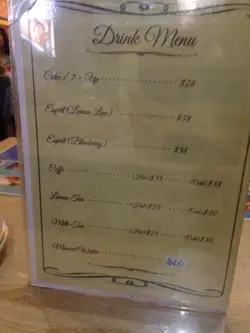 Drink Menu
Coke / 7 - Up $28
Esprit (Lemon Lime) $38
Esprit (Blueberry) $38
Coffe (Hot) (Cold) $38
Lemon Tea (Hot) $25 (Cold) $30
Milk Tea (Hot) $25 (Cold) $30
Mineral Water $20